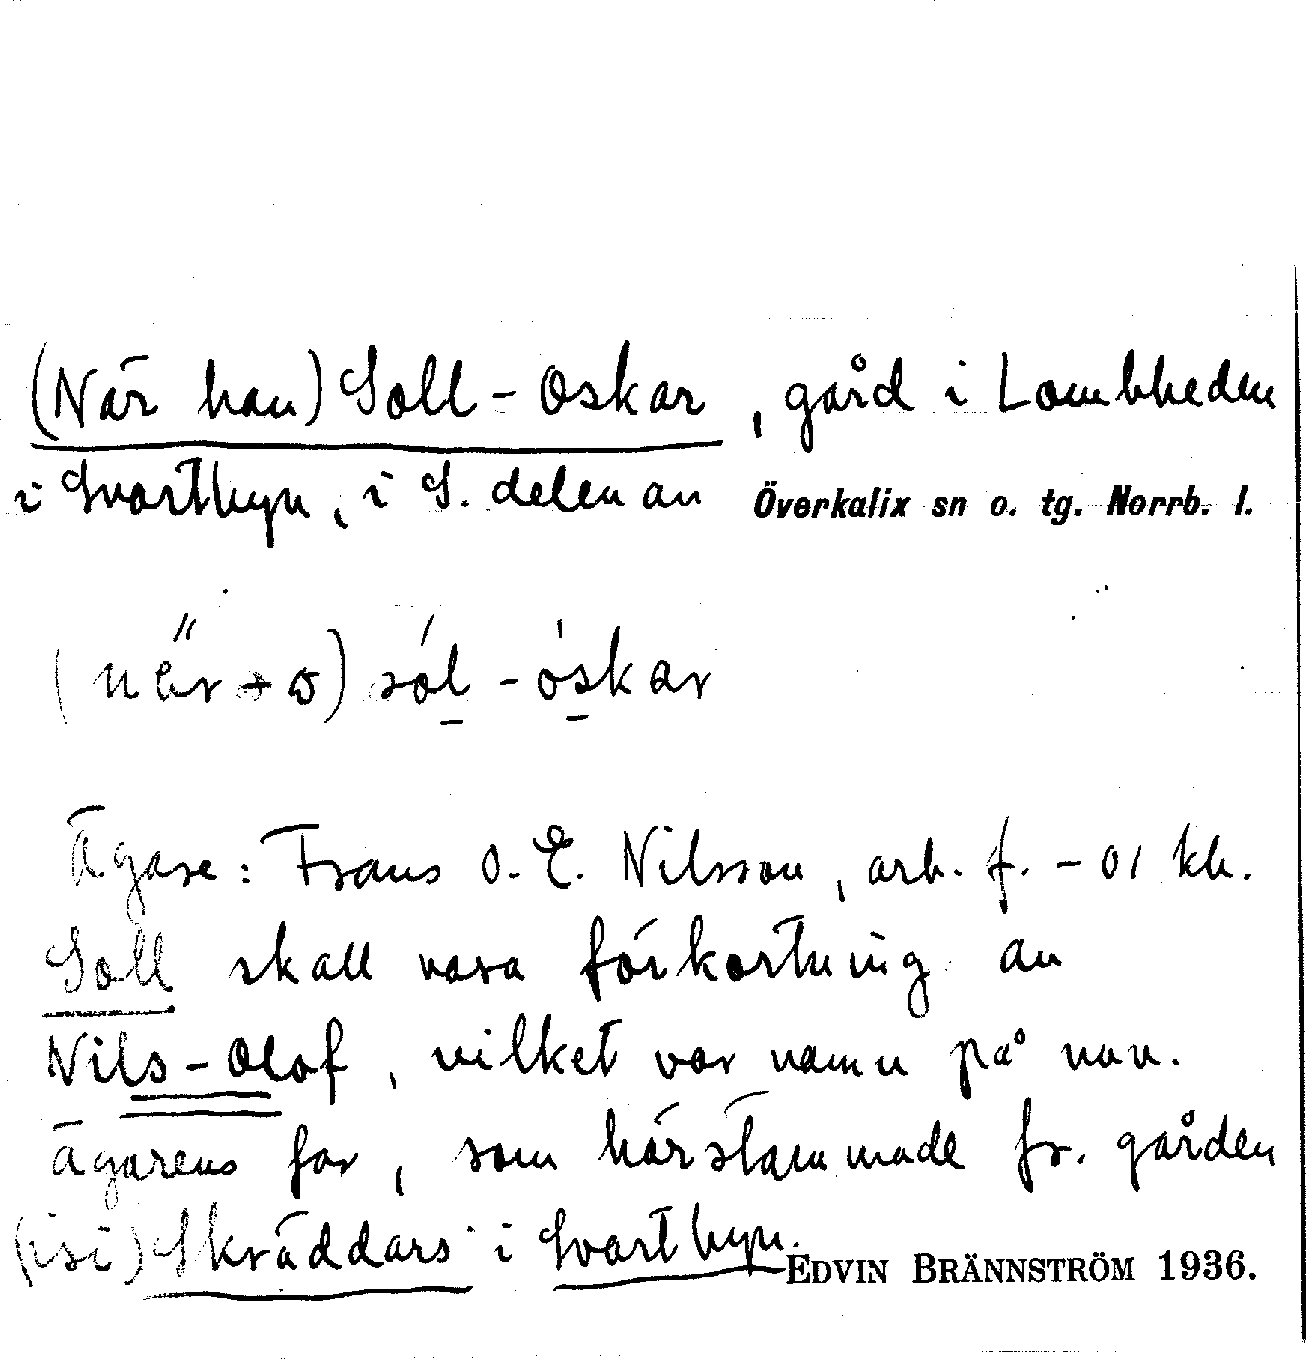 (När han) Soll-Oskar, gård i Lombheden
i Svartbyn, i S. delen av Överkalix sn o. tg. Norrb. l.
sól - óskar
Ägare: Frans O. E. Nilsson, arb. f. -01 kb.
Soll skall vara förkortning av
Nils-Olof, vilket var namn på nuv.
ägarens far, som härstammade fr. gården
(isi) Skräddars i Svartbyn.
EDVIN BRÄNNSTRÖM 1936.